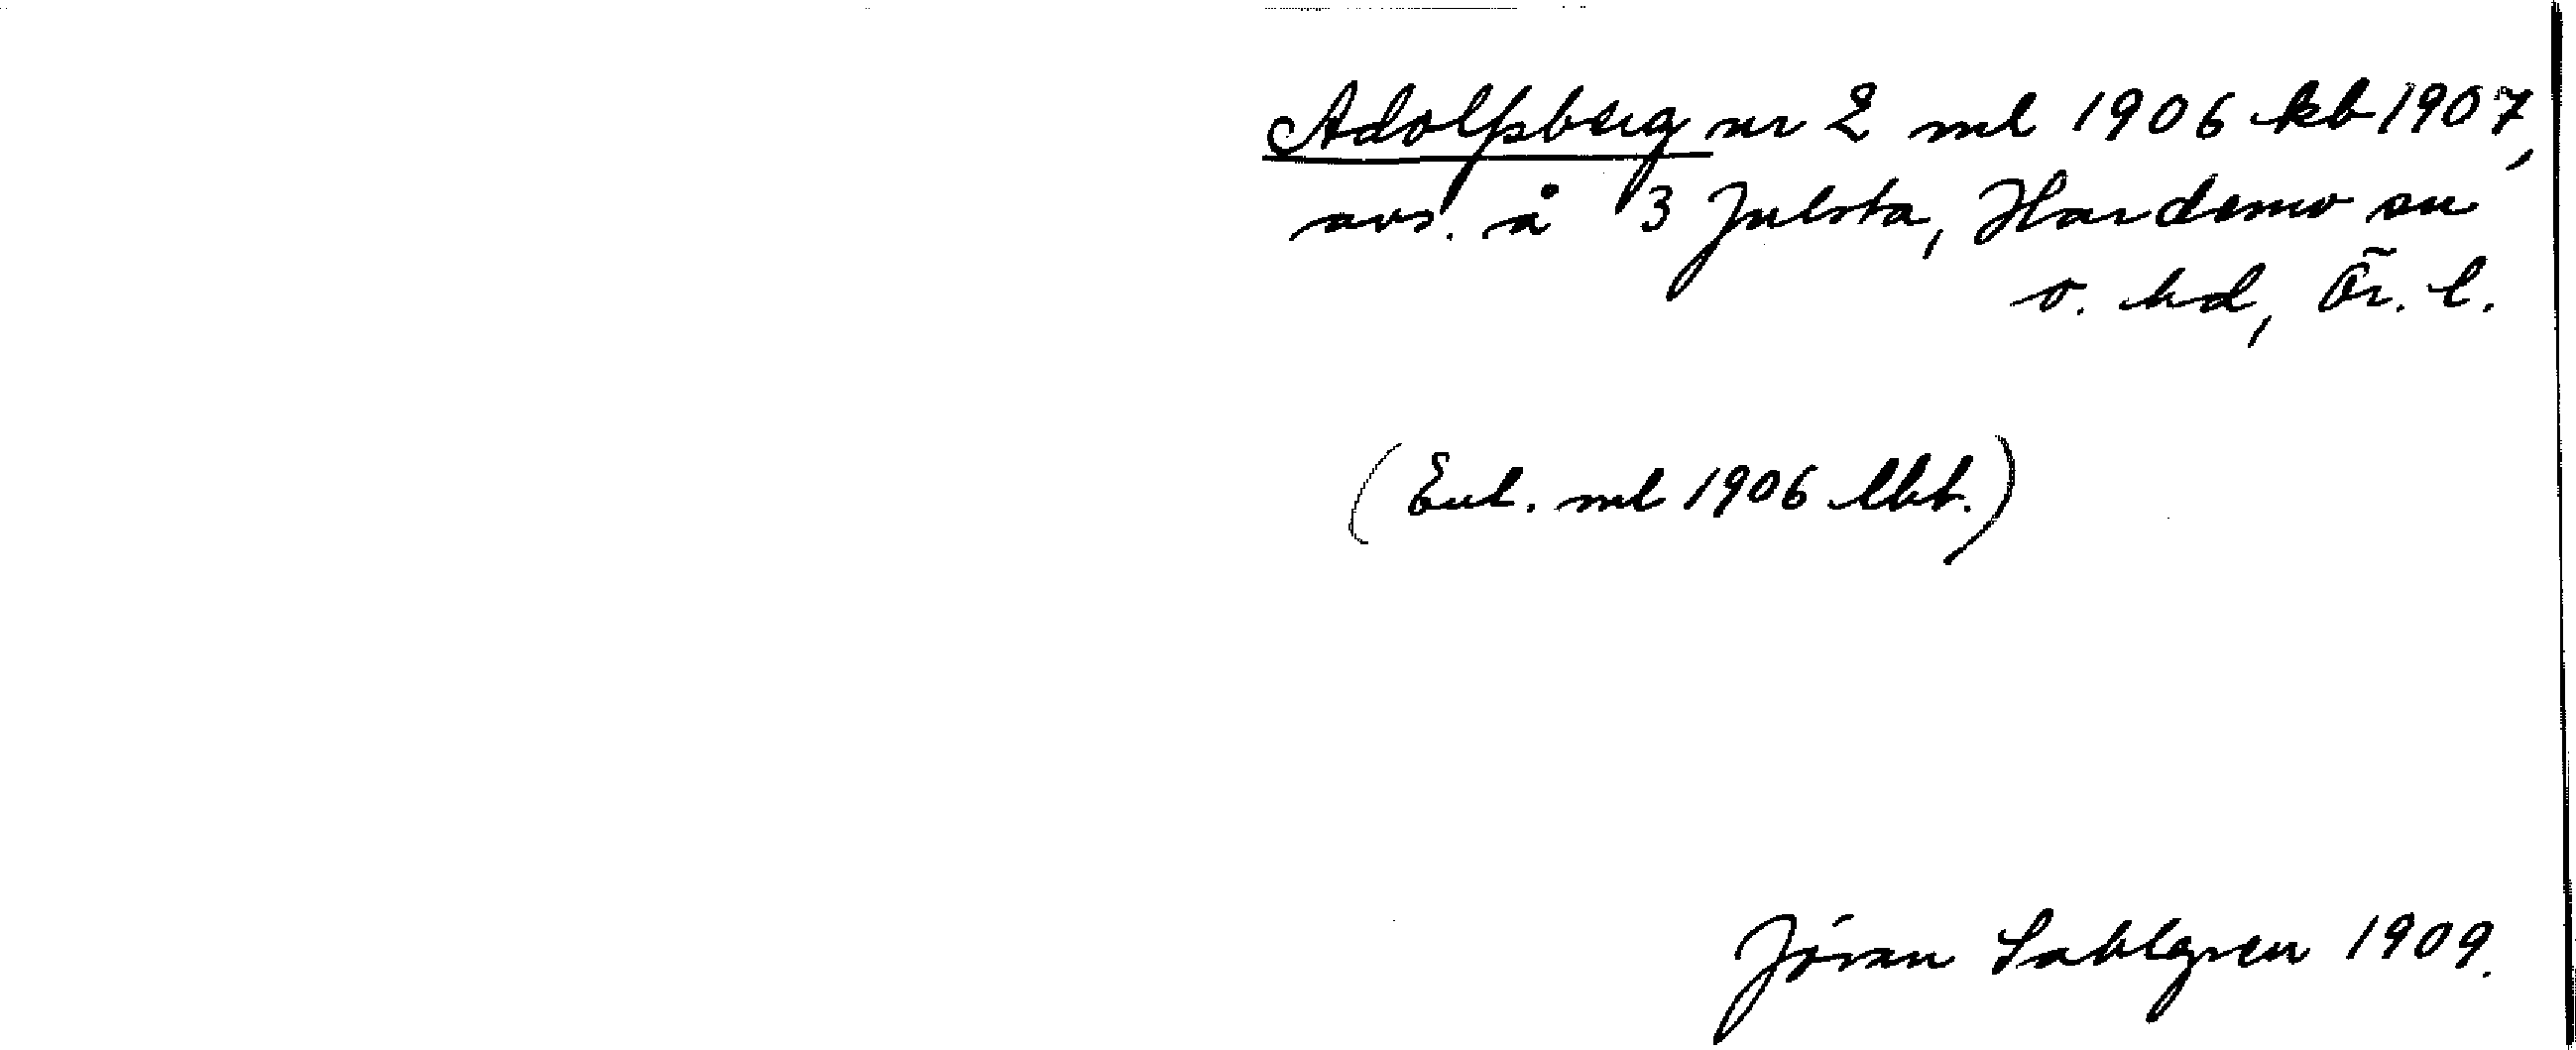 Adolfsberg nr 2 ml 1906 kb 1907,
avs. å 3 Julsta, Hardemo sn
o. hd, Ör. l.
(Enl. ml 1906 lht.)
Jöran Sahlgren 1909.